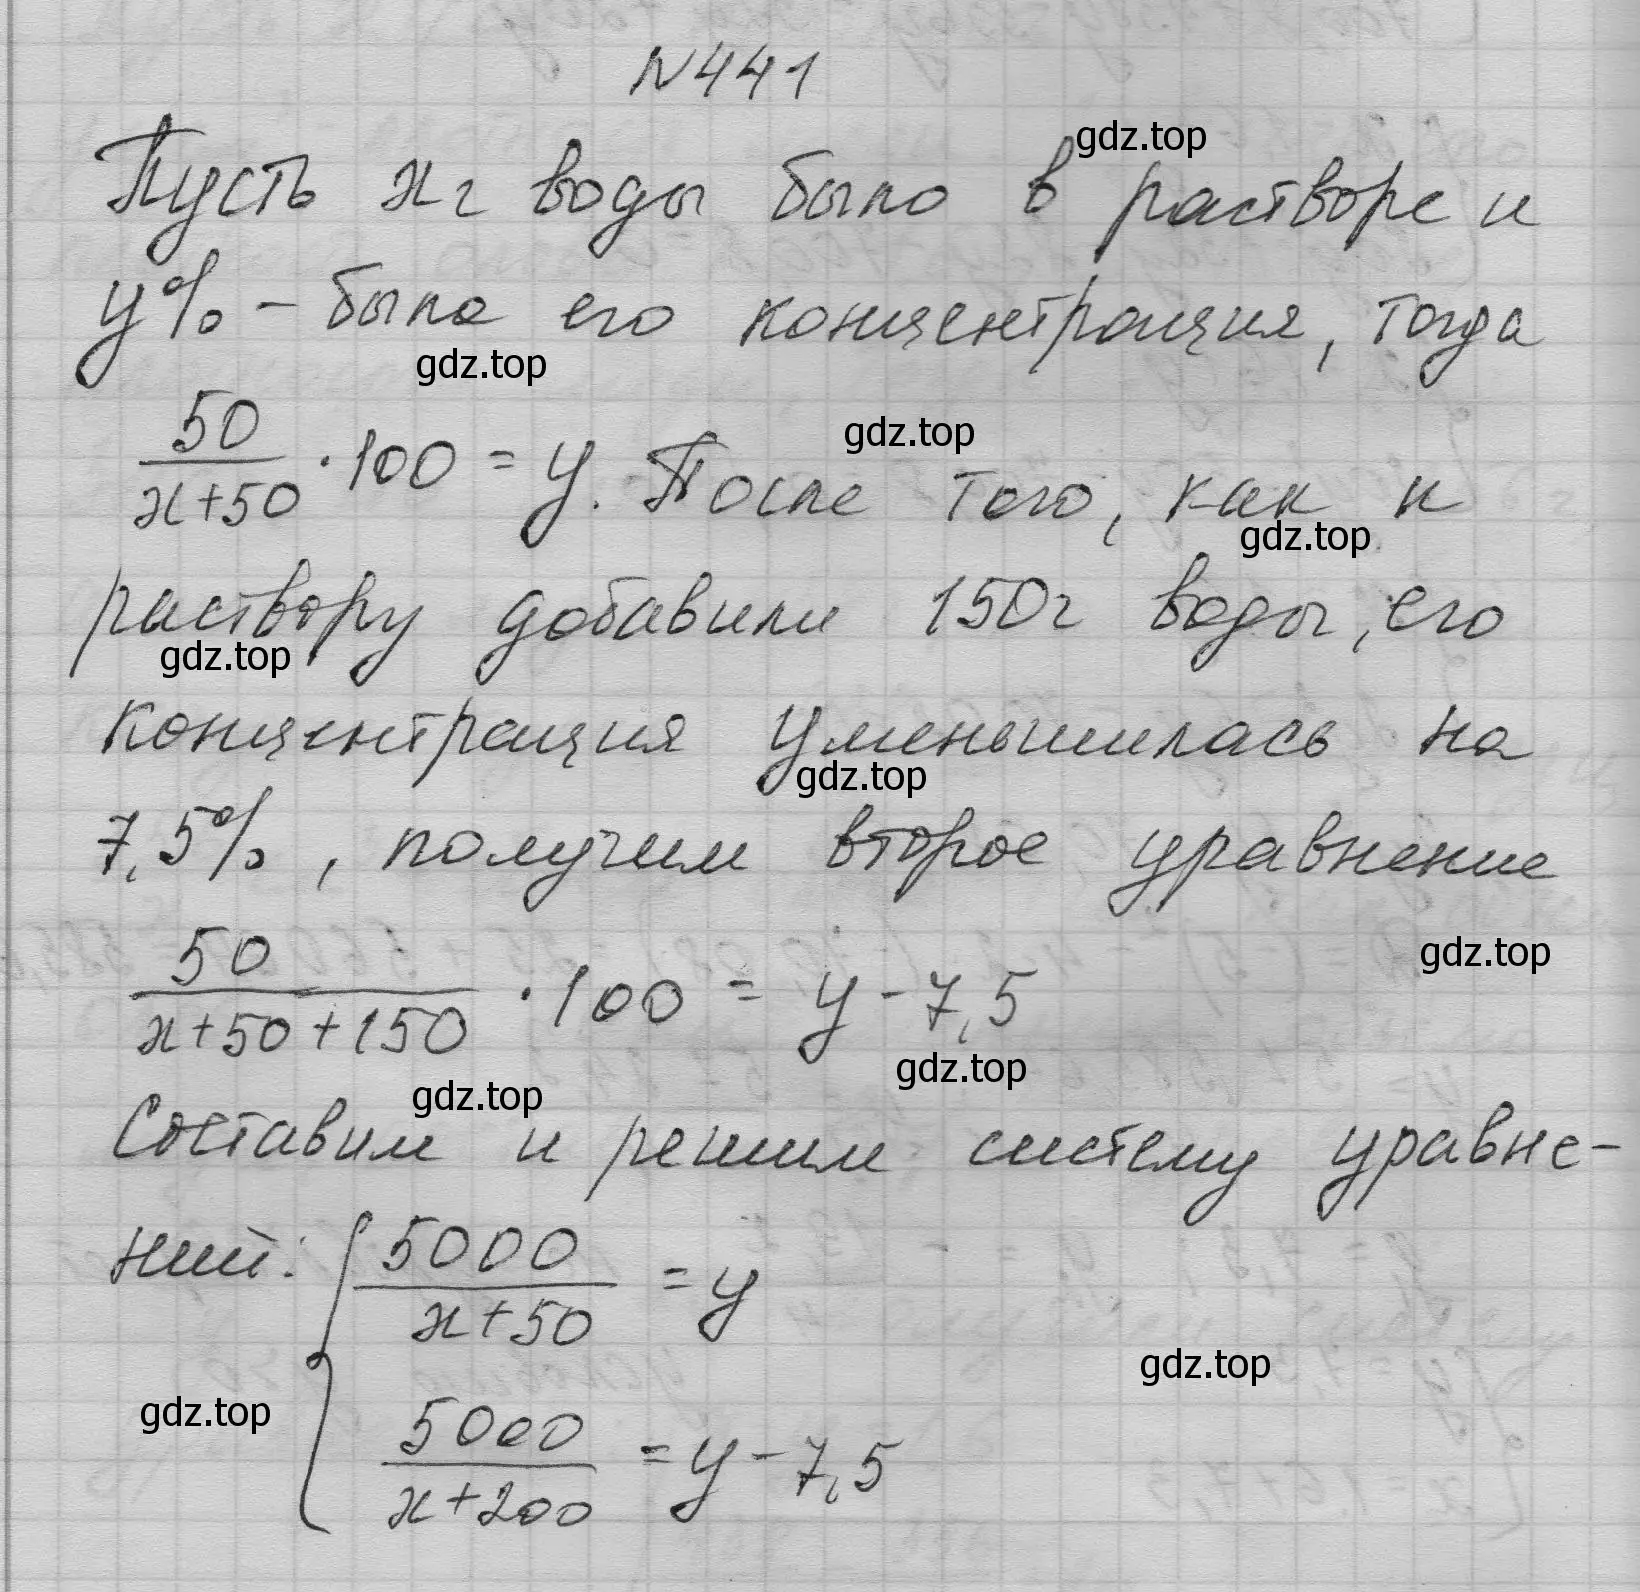 N441
gdz.top
Пусть x г воды было в растворе и
y% - была его концентрация, тогда
gdz.top
gdz.top
50/(x+50) · 100 = y. После того, как к
gdz.top
раствору добавили 150г воды, его
gdz.top
концентрация уменьшилась на
gdz.top
7,5%, получим второе уравнение
gdz.top
50/(x+50+150) · 100 = y - 7,5
gdz.top
gdz.top
Составим и решим систему уравне-
ний: { 5000/(x+50) = y
gdz.top
gdz.top
5000/(x+200) = y - 7,5